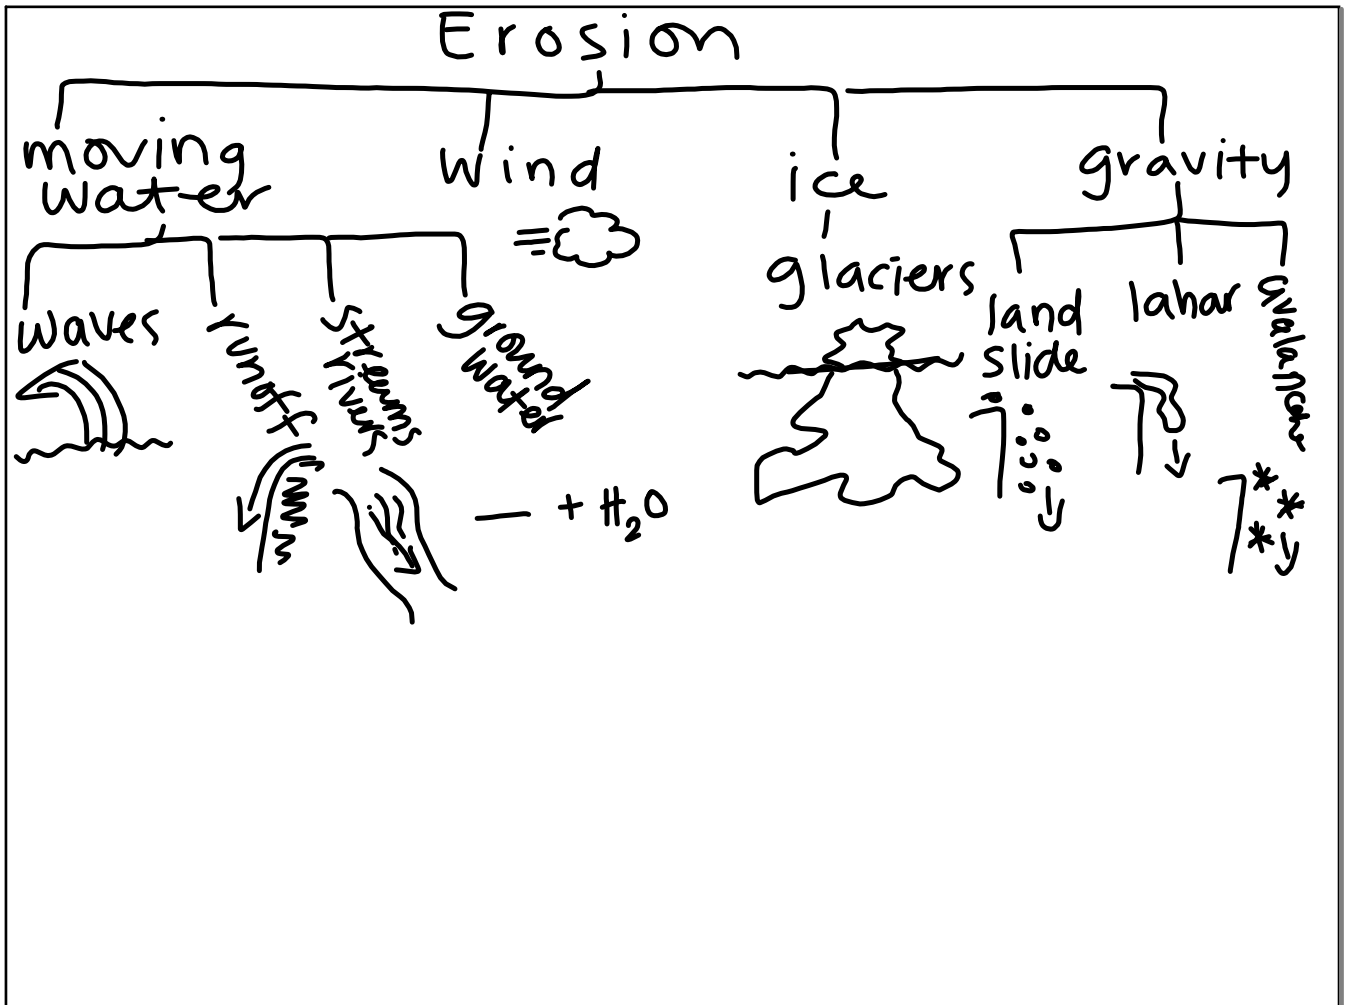 Erosion
moving
water
wind
ice
gravity
waves
runoff
streams
rivers
ground
water
glaciers
land
slide
lahar
avalanche
— + H₂O